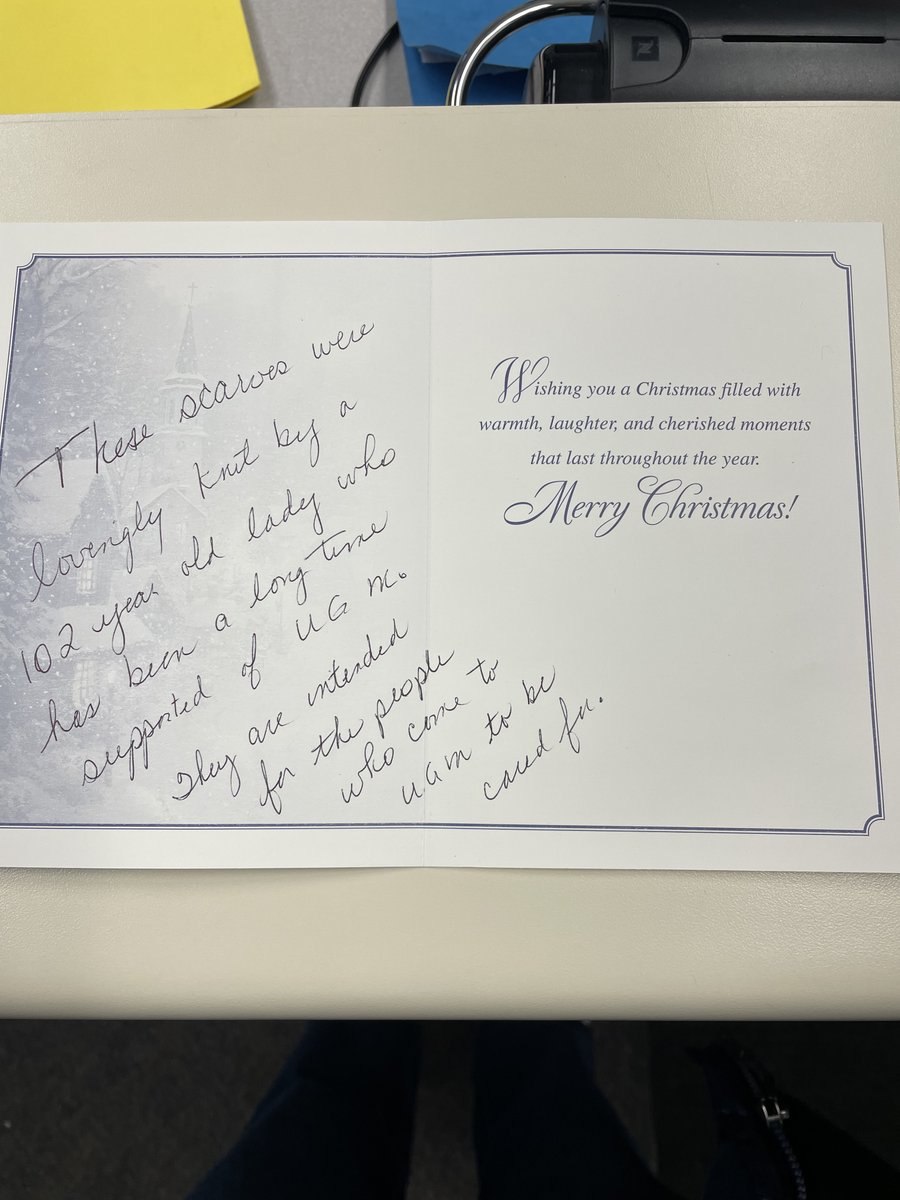 These scarves were
lovingly knit by a
102 year old lady who
has been a long time
supported of UG M.
They are intended
for the people
who come to
UGM to be
cared for.
Wishing you a Christmas filled with
warmth, laughter, and cherished moments
that last throughout the year.
Merry Christmas!